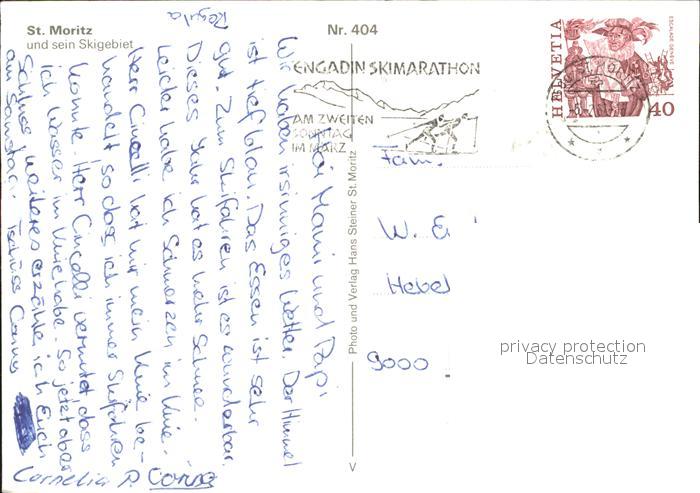 St. Moritz
und sein Skigebiet
Nr. 404
ENGADIN SKIMARATHON
AM ZWEITEN
SONNTAG
IM MÄRZ
HELVETIA
ESCALADE GENÈVE
40
Photo und Verlag Hans Steiner St. Moritz
Mami und Papi
Wir haben irsinniges Wetter. Der Himmel
ist tiefblau. Das Essen ist sehr
gut. Zum Skifahren ist es wunderbar.
Dieses Jahr hat es mehr Schnee.
Leider habe ich Schmerzen im Knie.
Herr Cincelli hat mir mein Knie be-
handelt so dass ich immer Skifahren
konnte. Herr Cincelli vermutet dass
ich Wasser im Knie habe. So jetzt aber
Schluss weiteres erzähle ich Euch
am Samstag. Tschüss
Cornelia R.
Regula
Fam.
W. E
Hebel
9000
privacy protection
Datenschutz